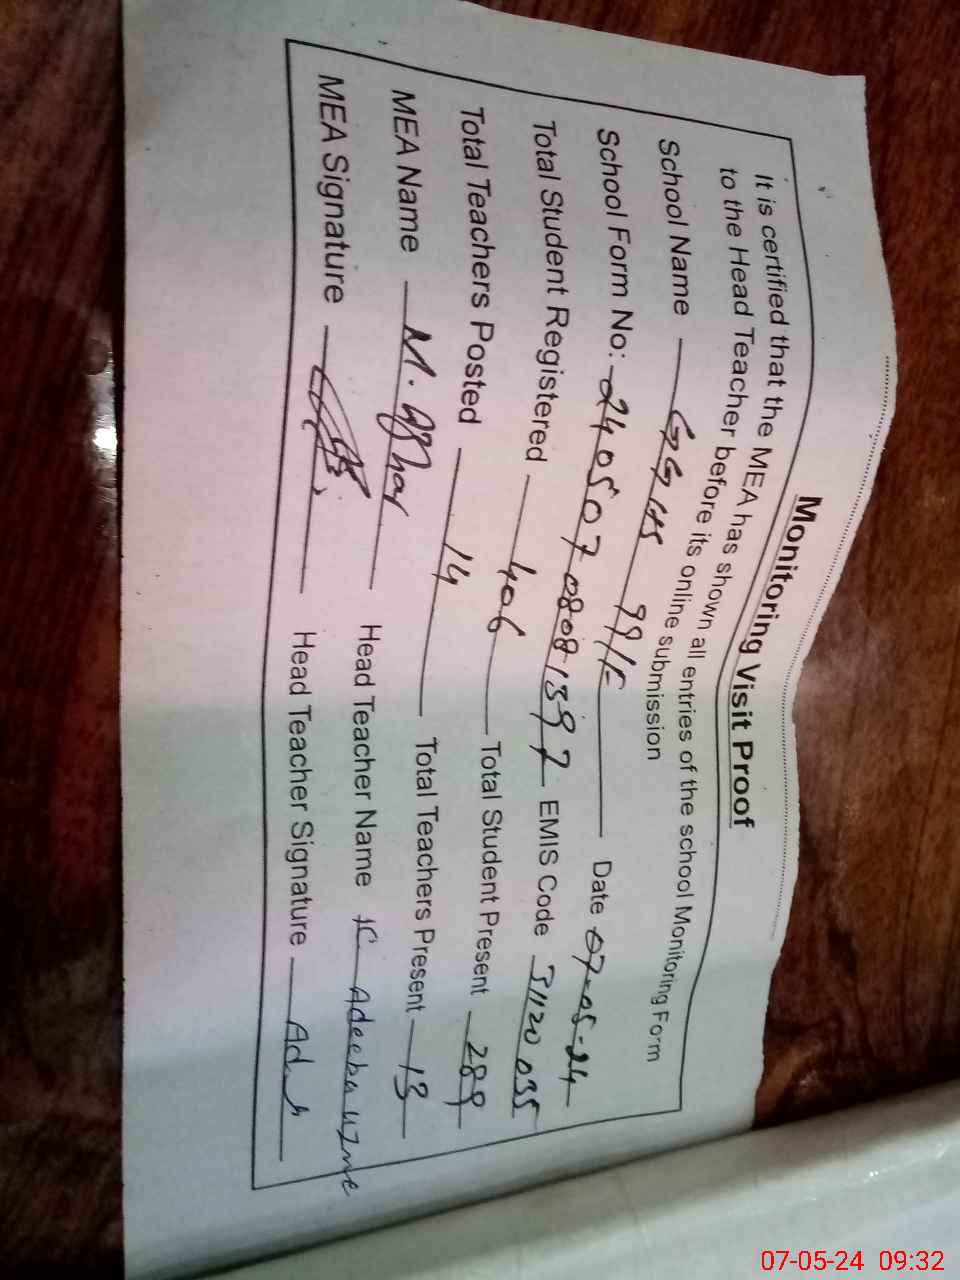 Monitoring Visit Proof
It is certified that the MEA has shown all entries of the school Monitoring Form
to the Head Teacher before its online submission
School Name GGHS 99/F Date 07-05-24
School Form No: 24050708081397 EMIS Code 31120035
Total Student Registered 406 Total Student Present 289
Total Teachers Posted 14 Total Teachers Present 13
MEA Name M. Head Teacher Name Adeeba uzme
MEA Signature Head Teacher Signature
07-05-24 09:32